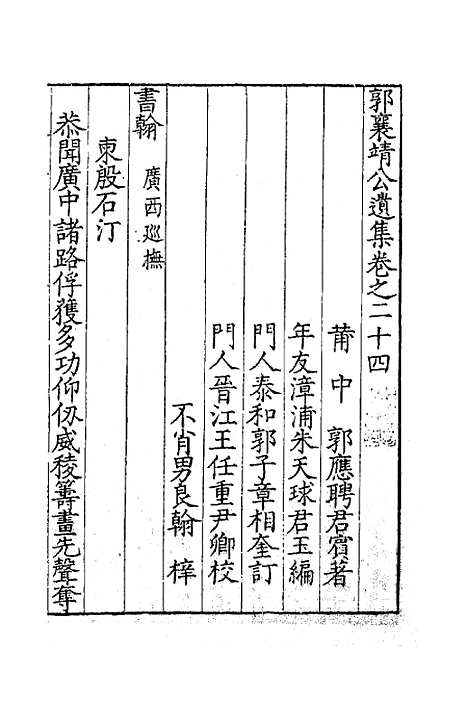 郭襄靖公遺集卷之二十四
莆中 郭應聘君賓著
年友漳浦朱天球君玉編
門人泰和郭子章相奎訂
門人晉江王任重尹卿校
不肖男良翰 梓
書翰 廣西巡撫
柬殷石汀
恭聞廣中諸路俘獲多功仰仭威稜籌畫先聲奪